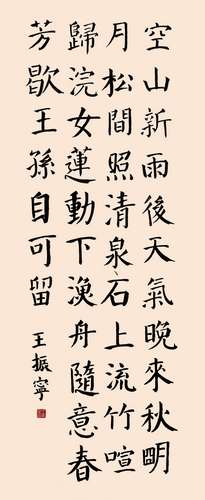 空山新雨後天氣晚來秋明
月松間照清泉石上流竹喧
歸浣女蓮動下漁舟隨意春
芳歇王孫自可留
王振寧